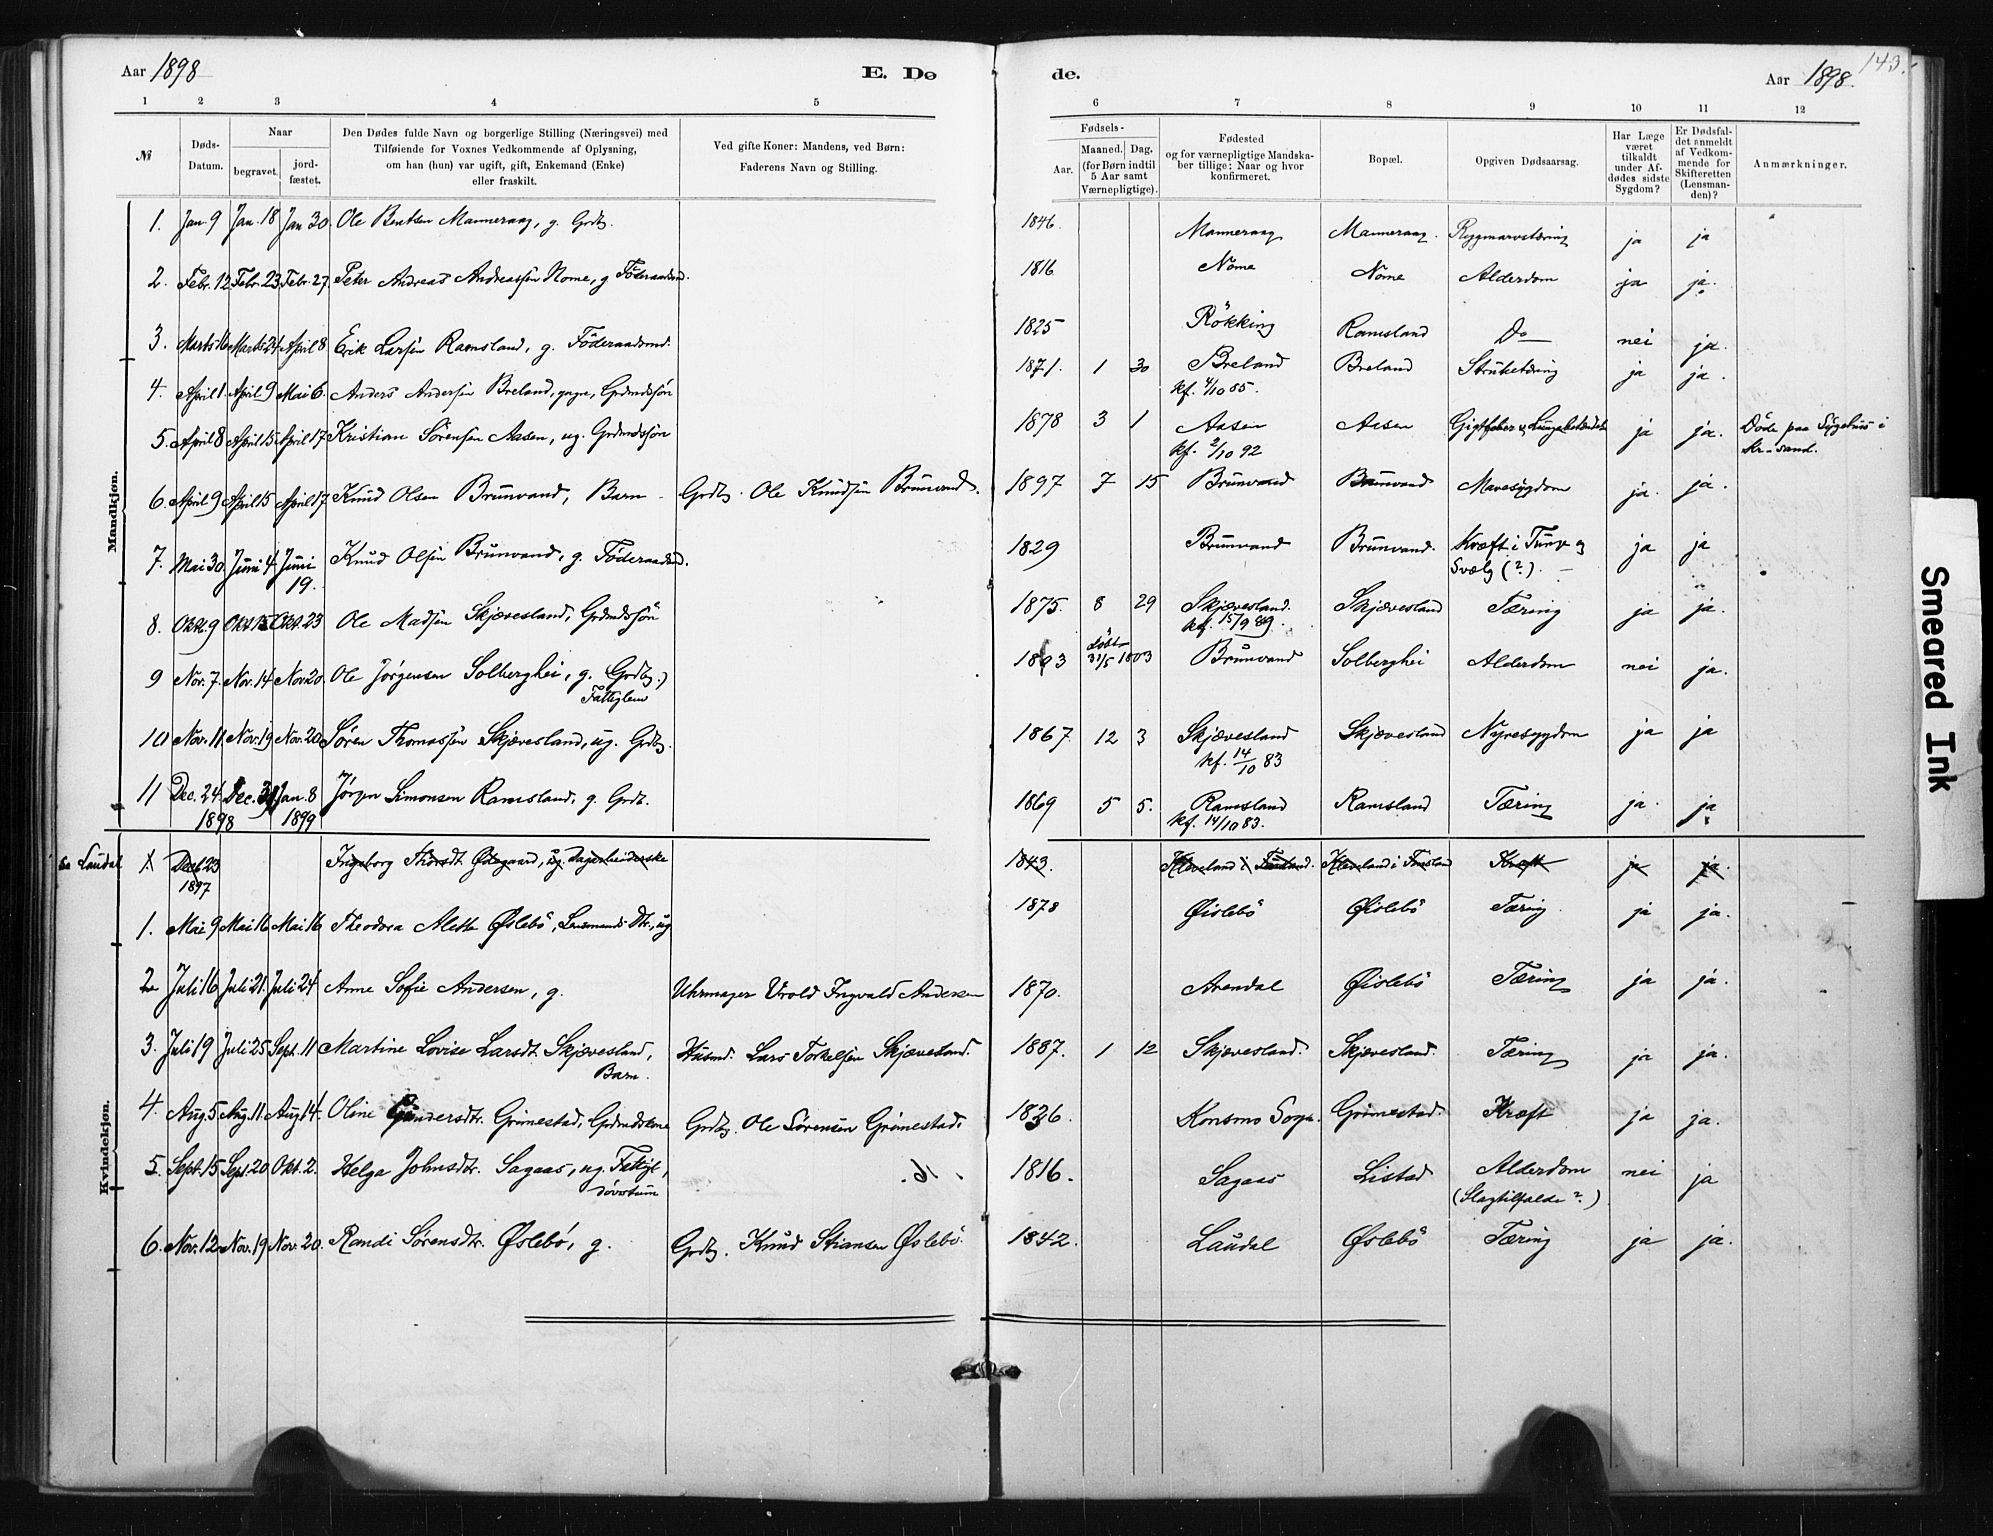 143.
Aar 1898 E. Dø de. Aar 1898.
1 2 3 4 5 6 7 8 9 10 11 12
№ Døds-Datum. Naar begravet. jordfæstet. Den Dødes fulde Navn og borgerlige Stilling (Næringsvei) med Tilføiende for Voxnes Vedkommende af Oplysning, om han (hun) var ugift, gift, Enkemand (Enke) eller fraskilt. Ved gifte Koner: Mandens, ved Børn: Faderens Navn og Stilling. Fødsels- Aar. Maaned. Dag. (for Børn indtil 5 Aar samt Værnepligtige). Fødested og for værnepligtige Mandskaber tillige: Naar og hvor konfirmeret. Bopæl. Opgiven Dødsaarsag. Har Læge været tilkaldt under Afdødes sidste Sygdom? Er Dødsfaldet anmeldt af Vedkommende for Skifteretten (Lensmanden)? Anmærkninger.
Mandkjøn.
1. Jan. 9 Jan. 18 Jan 30. Ole Bentsen Manneraag, g. Grdb. 1846. Manneraag Manneraag. Rygmarvstæring ja ja
2. Febr. 12 Febr. 23 Febr. 27. Peter Andreas Andreassen Nome, g. Föderaadsmd. 1816 Nome Nome Alderdom ja ja.
3. Marts 16 Marts 24 April 8. Erik Larsen Ramsland, g. Föderaadsmd. 1825 Rökking Ramsland Do nei ja.
4. April 1. April 9 Mai 6. Anders Andersen Breland, yngre, Grdmdssön 1871. 1 30 Breland Breland Strubetæring ja ja.
kf. 4/10 85.
5. April 8 April 15 April 17 Kristian Sörensen Aasen, ug. Grdmdssön 1878 3 1 Aasen Aasen Gigtfeber ja ja. Döde paa Sygehus i
kf. 2/10 92 Kr-sand.
6. April 9 April 15 April 17 Knud Olsen Brunvand, Barn Grdb. Ole Knudsen Brunvand. 1897 7 15 Brunvand Brunvand Mavesygdom ja. ja.
7. Mai 30 Juni 4 Juni 19. Knud Olsen Brunvand, g. Föderaadsmd. 1829 Brunvand Brunvand. Kræft i Tunge og ja ja
Svælg (?).
8. Okt. 9 Okt. 15 Okt. 23 Ole Madsen Skjævesland, Grdmdssön 1875. 8 29 Skjævesland. Skjævesland Tæring ja ja.
kf. 15/9 89.
9 Nov. 7. Nov. 14 Nov 20. Ole Jørgensen Solberghei, g. Grdb., 1803 døbt 31/5 1803 Brunvand Solberghei Alderdom nei ja.
Fattiglem
10 Nov. 11 Nov. 19 Nov. 20 Søren Thomassen Skjævesland, ug. Grdb. 1867. 12 3 Skjævesland Skjævesland Nyresygdom ja ja
kf. 14/10 83
11 Dec. 24. Dec. 31 Jan. 8 Jørgen Simonsen Ramsland, g. Grdb. 1869 5 5. Ramsland Ramsland Tæring ja. ja
1898 1899 kf. 14/10 83.
Kvindekjøn.
Laudal 1 Dec. 23 Ingeborg Thorsdt. Ødegaard, ug. Dagarbeiderske 1843. Kleveland i Finsland. Kleveland i Finsland Kræft ja ja.
1897
1. Mai 9 Mai 16 Mai 16 Theodora Alette Øslebö, Lensmands Dtr., ug 1878 Øislebö Øislebö Tæring. ja ja.
2 Juli 16 Juli 21. Juli 24 Anne Sofie Andersen, g. Uhrmager Vrold Ingvald Andersen 1870. Arendal Øislebö Tæring ja ja.
3. Juli 19 Juli 25 Sept. 11 Martine Lovise Larsdt. Skjævesland, Husmd. Lars Torkelsen Skjævesland. 1887. 1 12 Skjævesland. Skjævesland. Tæring ja ja.
Barn.
4. Aug. 5 Aug. 11. Aug. 14. Oline Gundersdtr. Grimestad, Grdmdskone Grdb. Ole Sørensen Grimestad. 1836. Konsmo Sogn. Grimestad. Kræft ja ja.
5. Sept. 15 Sept. 20 Okt. 2. Helga Johnsdtr. Sagaas, ug. Fattigl., 1816. Sagaas Listad Alderdom nei ja
døvstum (Slagtilfælde?)
6. Nov. 12 Nov. 19 Nov. 20. Randi Sørensdtr. Øslebö, g. Grdb. Knud Stiansen Øslebö. 1842. Laudal Øslebö Tæring ja ja.
Smeared Ink